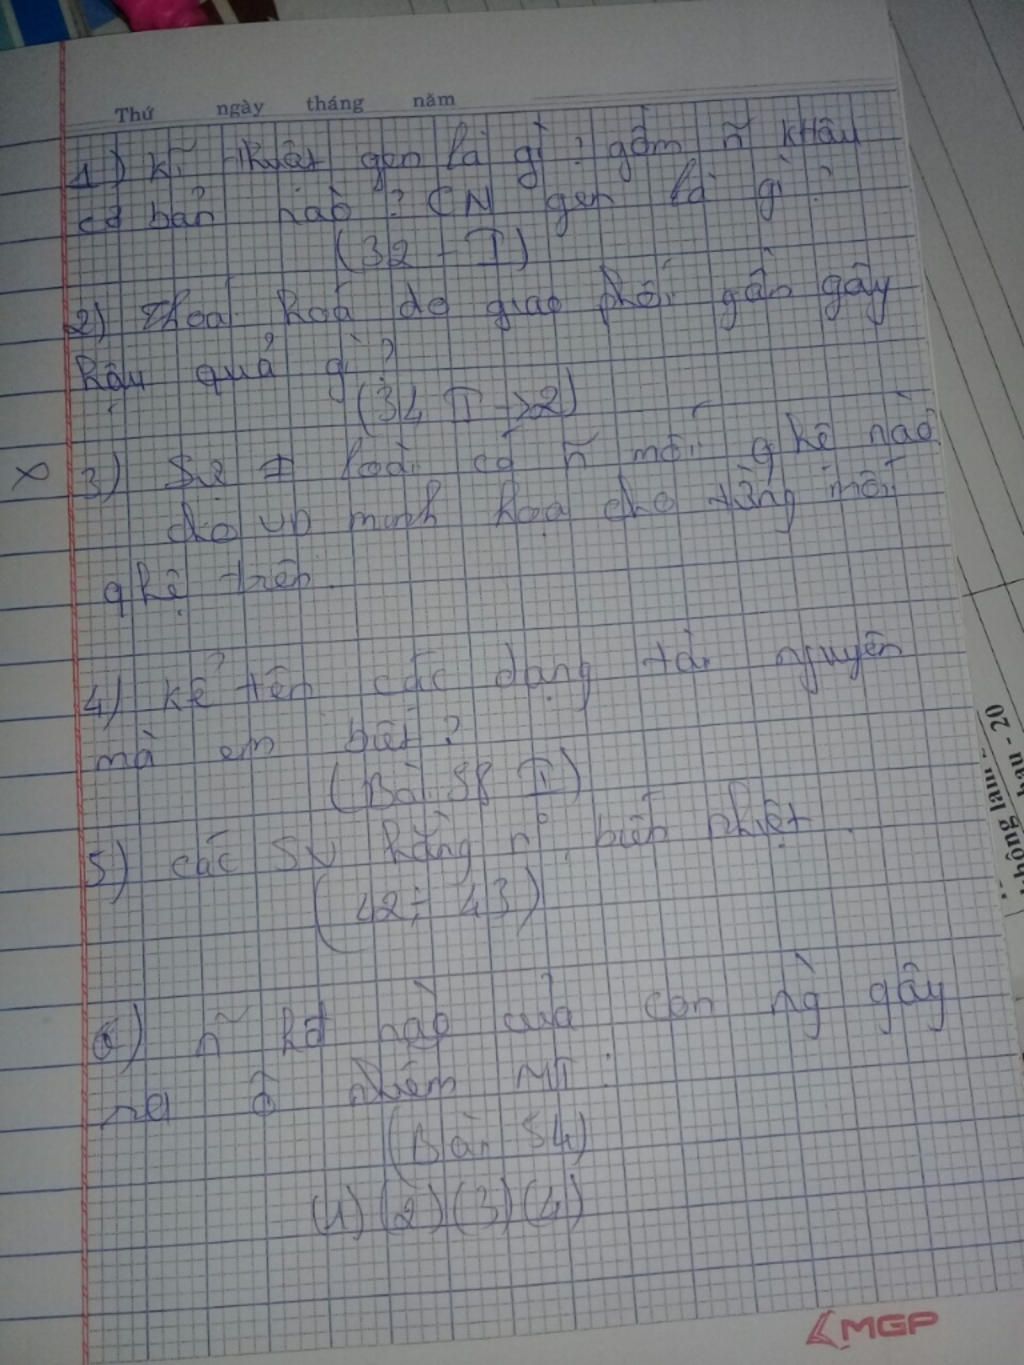 Thứ ngày tháng năm
1) Kĩ thuật gen là gì? gồm ~n khâu
cơ bản nào? CN gen là gì?
(32 - I)
2) Thoái hoá do giao phối gần gây
hậu quả gì?
(34 II → 2)
x 3) SV ≠ loài có ~n mối qhệ nào
cho VD minh họa cho từng mối
qhệ trên.
4) Kể tên các dạng tài nguyên
mà em biết?
(Bài 58 I)
5) các SV hằng n°, biến nhiệt
(42; 43)
6) ~n hđ nào của con ng` gây
ra ô nhiễm MT:
(Bài 54)
(1) (2) (3) (4)
MGP
hau - 20